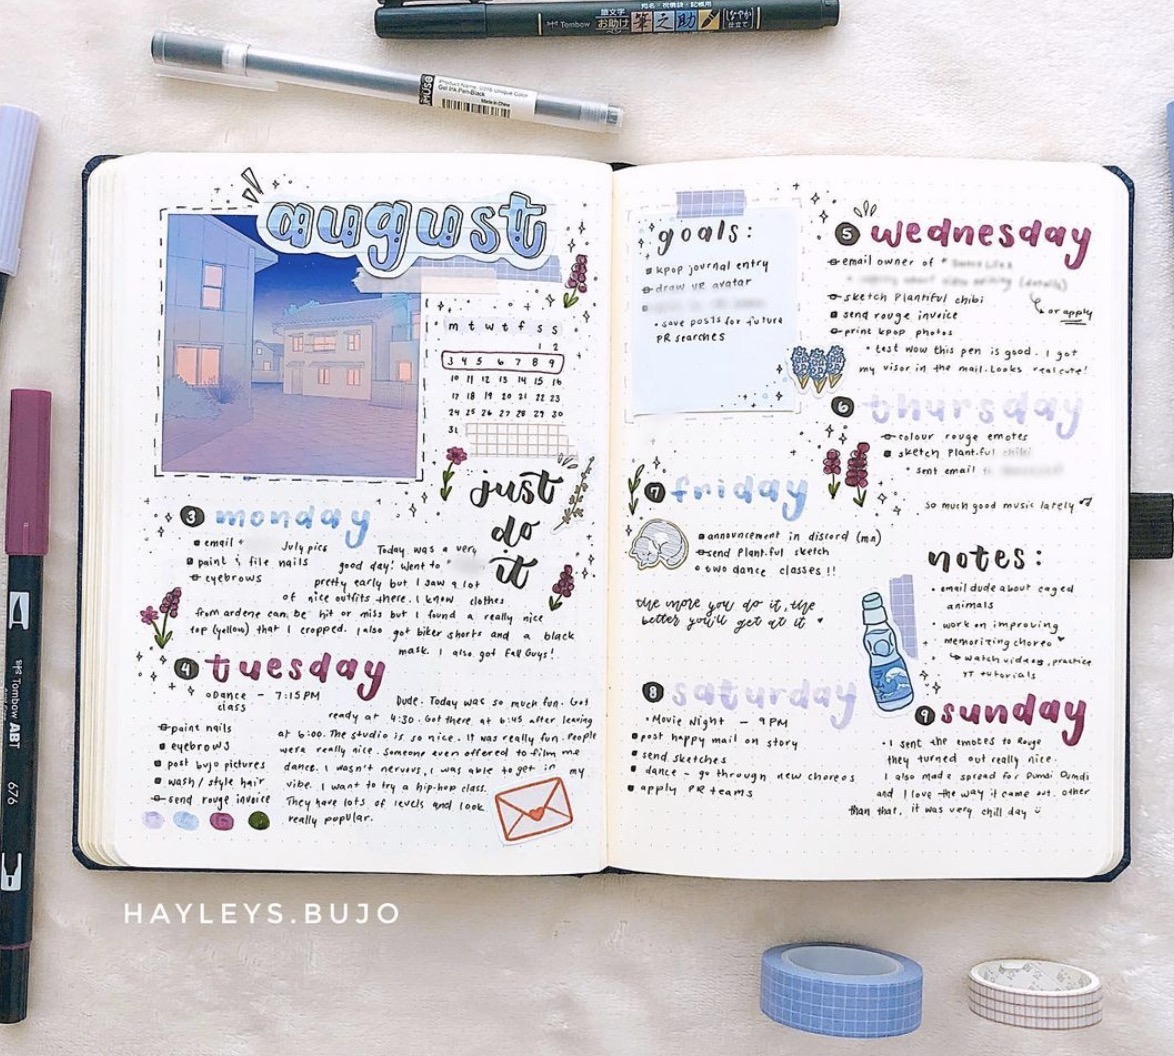 筆文字
お助け
筆之助
しなやか
仕立て
宛名・祝儀袋・記帳用
Tombow
Product Name: 0.35 Unique Color
Gel Ink Pen-Black
Made in China
MUSO
august
m t w t f s s
1 2
3 4 5 6 7 8 9
10 11 12 13 14 15 16
17 18 19 20 21 22 23
24 25 26 27 28 29 30
31
just
do
it
3 monday
email
July pics
paint & file nails
eyebrows
Today was a very
good day! Went to
pretty early but I saw a lot
of nice outfits there. I know clothes
from ardene can be hit or miss but I found a really nice
top (yellow) that I cropped. I also got biker shorts and a black
mask. I also got Fall Guys!
4 tuesday
Dance - 7:15 PM
class
paint nails
eyebrows
post bujo pictures
wash/style hair
send rouge invoice
Dude. Today was so much fun. Got
ready at 4:30. Got there at 6:45 after leaving
at 6:00. The studio is so nice. It was really fun. People
were really nice. Someone even offered to film me
dance. I wasn't nervous, I was able to get in my
vibe. I want to try a hip-hop class.
They have lots of levels and look
really popular.
goals:
kpop journal entry
draw VR avatar
save posts for future
PR searches
5 wednesday
email owner of
(details)
or apply
sketch Plantiful chibi
send rouge invoice
print kpop photos
test wow this pen is good. I got
my visor in the mail. Looks real cute!
6 thursday
colour rouge emotes
sketch Plant.ful chibi
sent email
so much good music lately
7 friday
announcement in discord (mn)
send Plant.ful sketch
two dance classes!!
the more you do it, the
better you'll get at it
notes:
email dude about caged
animals
work on improving
memorizing choreo
watch videos, practice
YT tutorials
8 saturday
Movie Night - 9 PM
post happy mail on story
send sketches
dance - go through new choreos
apply PR teams
9 sunday
I sent the emotes to Rouge
they turned out really nice.
I also made a spread for Dumdi Dumdi
and I love the way it came out. other
than that, it was very chill day
Tombow ABT
676
HAYLEYS.BUJO